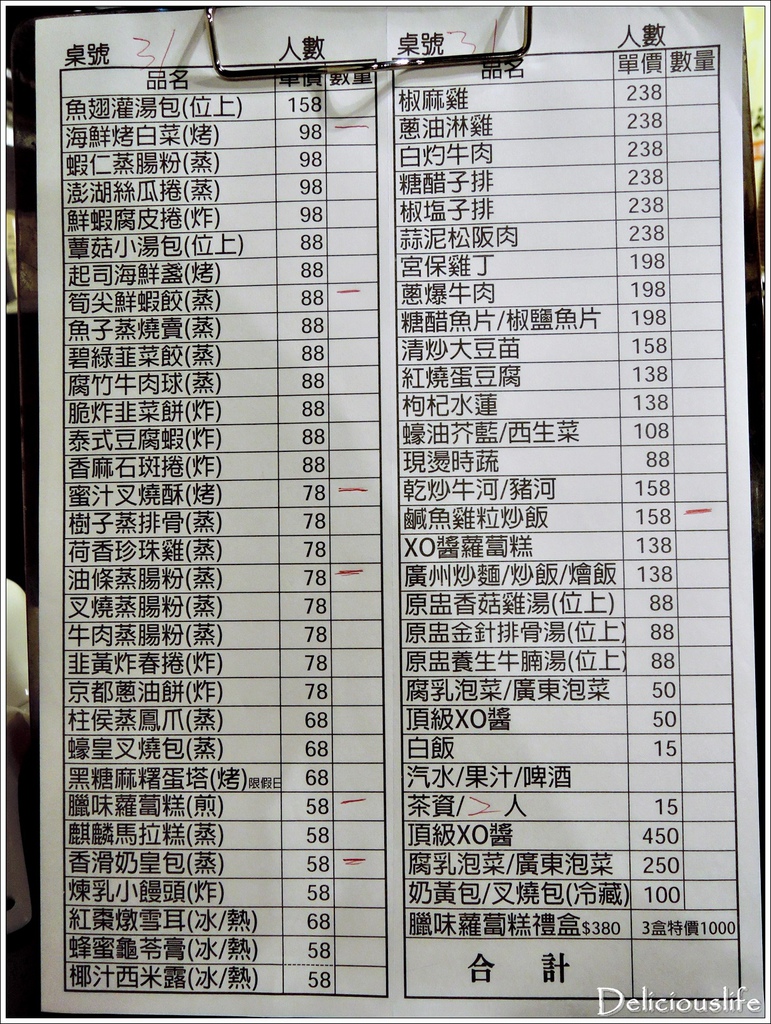 桌號 31 人數
品名 單價 數量
魚翅灌湯包(位上) 158
海鮮烤白菜(烤) 98 一
蝦仁蒸腸粉(蒸) 98
澎湖絲瓜捲(蒸) 98
鮮蝦腐皮捲(炸) 98
蕈菇小湯包(位上) 88
起司海鮮盞(烤) 88
筍尖鮮蝦餃(蒸) 88 一
魚子蒸燒賣(蒸) 88
碧綠韭菜餃(蒸) 88
腐竹牛肉球(蒸) 88
脆炸韭菜餅(炸) 88
泰式豆腐蝦(炸) 88
香麻石斑捲(炸) 88
蜜汁叉燒酥(烤) 78 一
樹子蒸排骨(蒸) 78
荷香珍珠雞(蒸) 78
油條蒸腸粉(蒸) 78 一
叉燒蒸腸粉(蒸) 78
牛肉蒸腸粉(蒸) 78
韭黃炸春捲(炸) 78
京都蔥油餅(炸) 78
柱侯蒸鳳爪(蒸) 68
蠔皇叉燒包(蒸) 68
黑糖麻糬蛋塔(烤)限假日 68
臘味蘿蔔糕(煎) 58 一
麒麟馬拉糕(蒸) 58
香滑奶皇包(蒸) 58 一
煉乳小饅頭(炸) 58
紅棗燉雪耳(冰/熱) 68
蜂蜜龜苓膏(冰/熱) 58
椰汁西米露(冰/熱) 58
桌號 31 人數
品名 單價 數量
椒麻雞 238
蔥油淋雞 238
白灼牛肉 238
糖醋子排 238
椒塩子排 238
蒜泥松阪肉 238
宮保雞丁 198
蔥爆牛肉 198
糖醋魚片/椒鹽魚片 198
清炒大豆苗 158
紅燒蛋豆腐 138
枸杞水蓮 138
蠔油芥藍/西生菜 108
現燙時蔬 88
乾炒牛河/豬河 158
鹹魚雞粒炒飯 158 一
XO醬蘿蔔糕 138
廣州炒麵/炒飯/燴飯 138
原盅香菇雞湯(位上) 88
原盅金針排骨湯(位上) 88
原盅養生牛腩湯(位上) 88
腐乳泡菜/廣東泡菜 50
頂級XO醬 50
白飯 15
汽水/果汁/啤酒
茶資/2人 15
頂級XO醬 450
腐乳泡菜/廣東泡菜 250
奶黃包/叉燒包(冷藏) 100
臘味蘿蔔糕禮盒$380 3盒特價1000
合 計
Deliciouslife